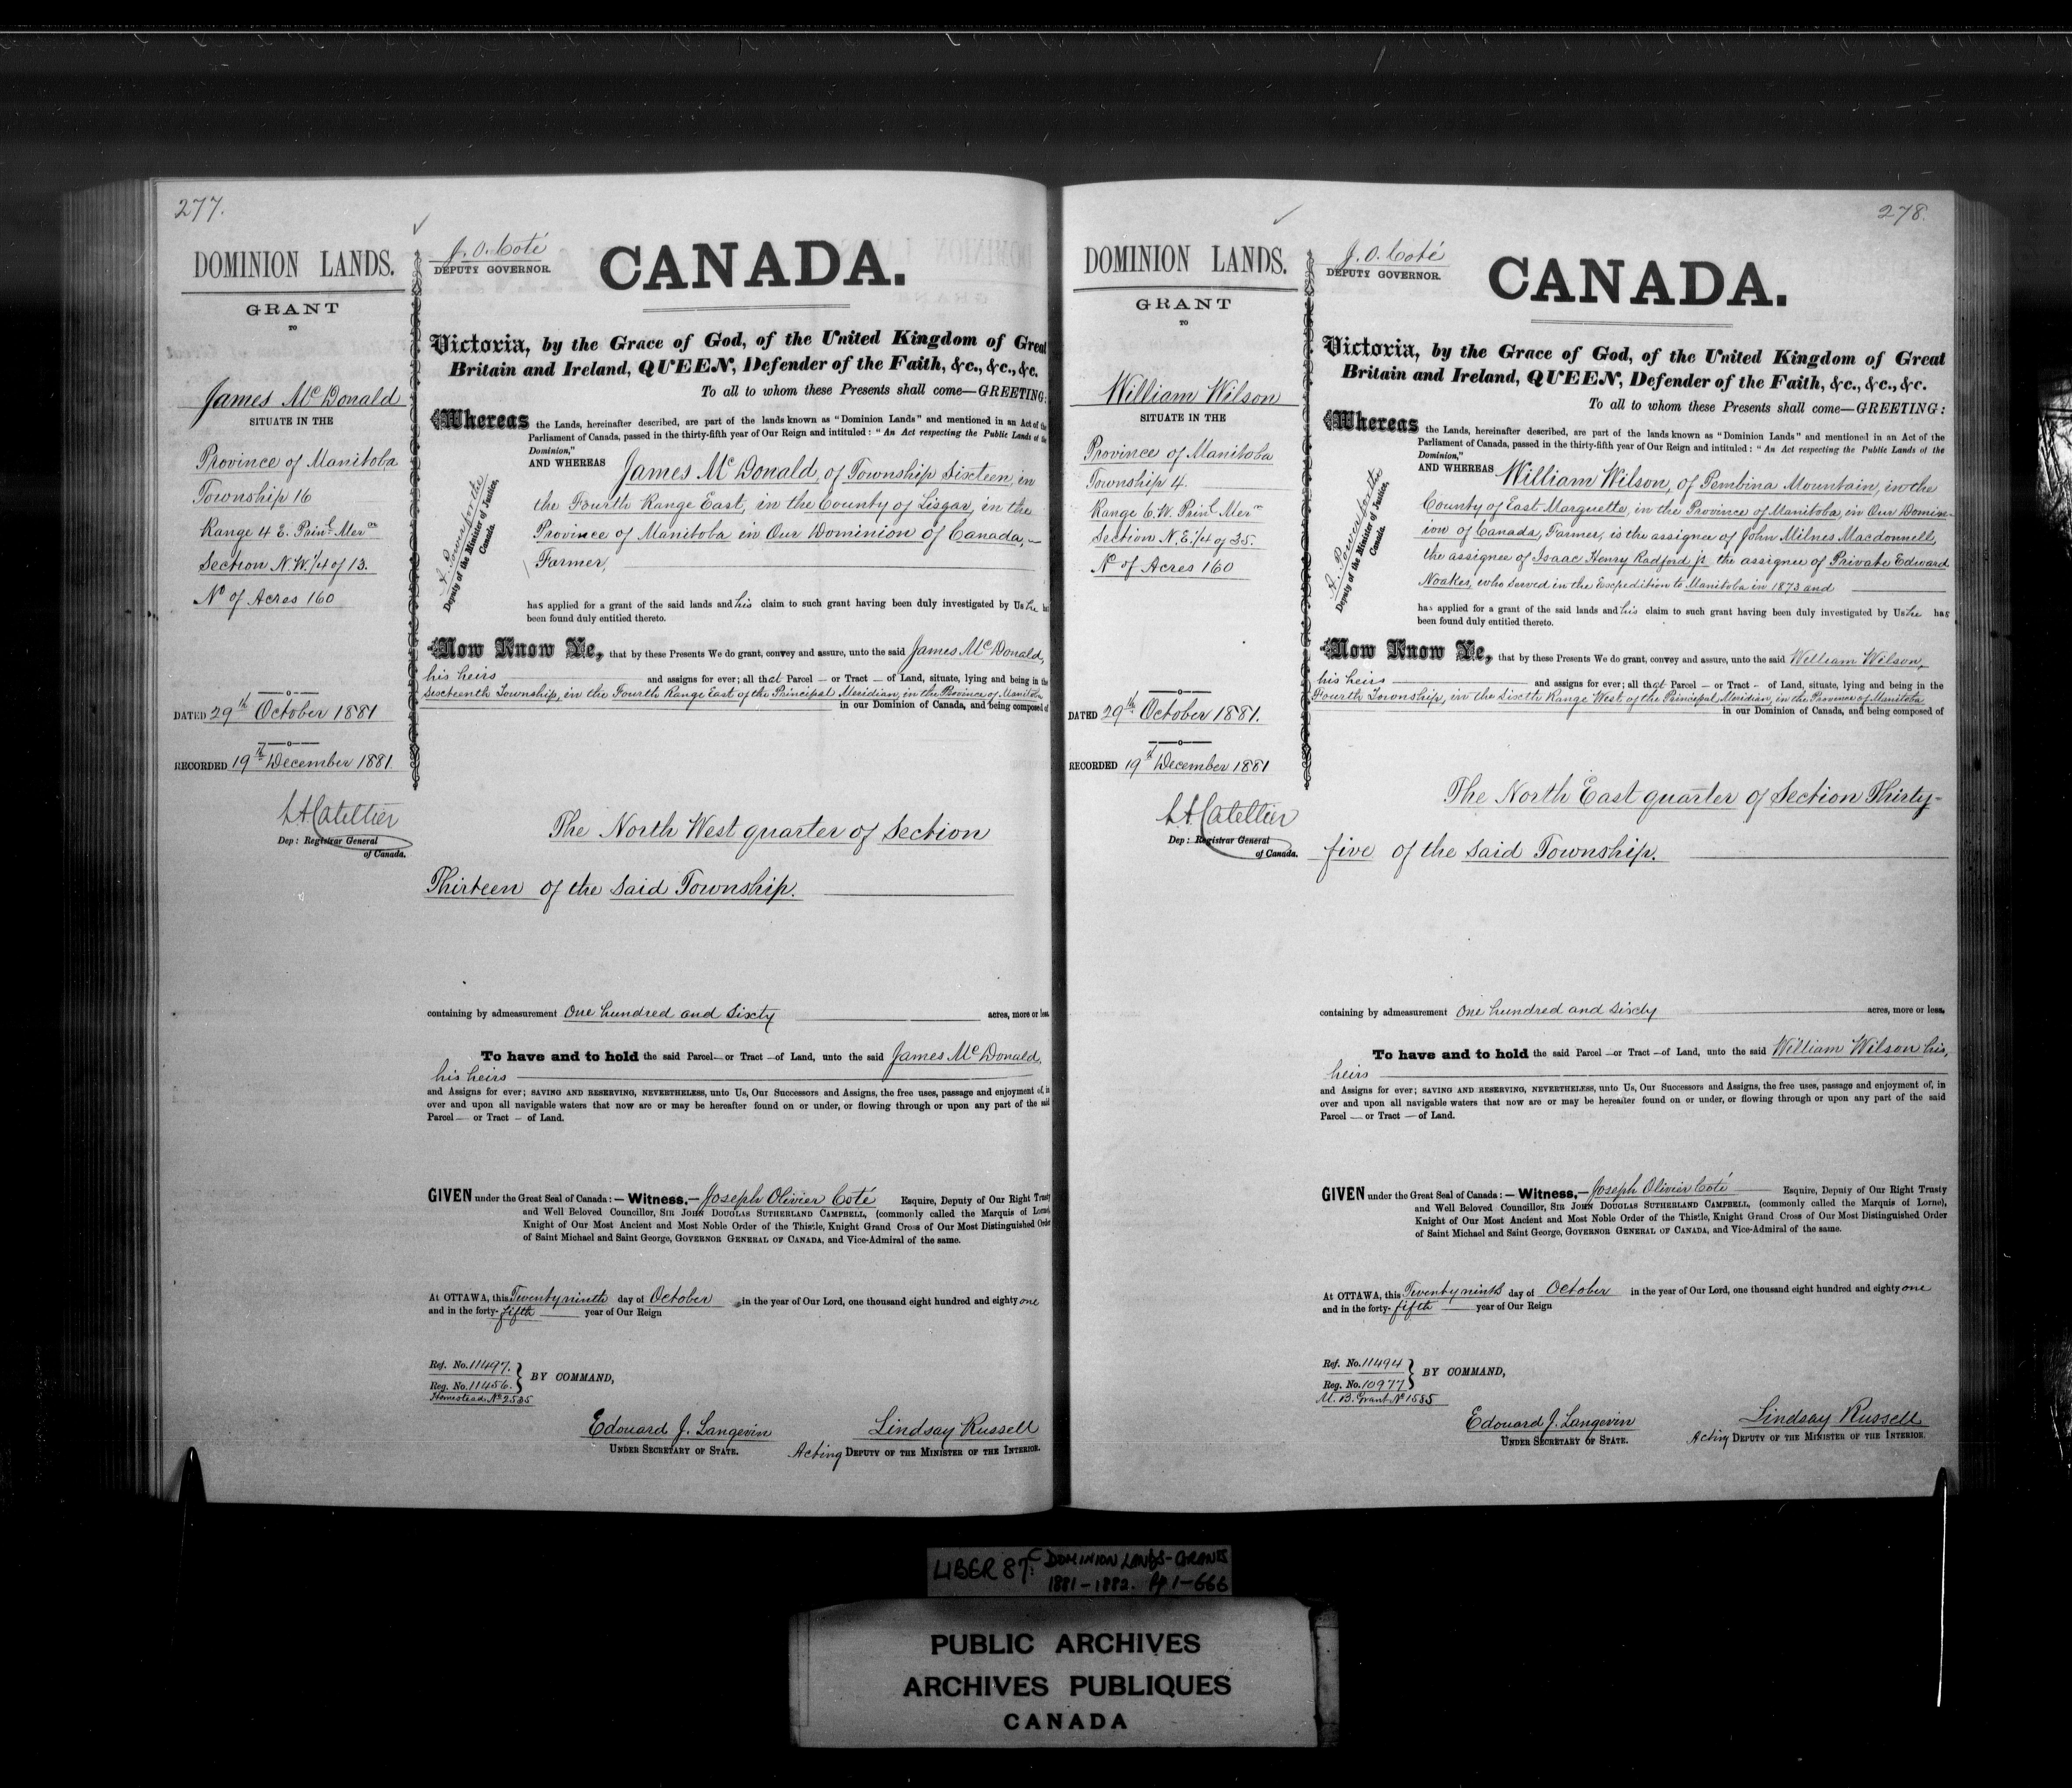 277.
DOMINION LANDS.
GRANT
TO
James McDonald
SITUATE IN THE
Province of Manitoba
Township 16
Range 4 E. Prinl. Mern
Section N.W. 1/4 of 13.
No of Acres 160
DATED 29th October 1881
RECORDED 19th December 1881
L A Catellier
Dep: Registrar General
of Canada.
J. O. Coté
DEPUTY GOVERNOR.
CANADA.
Victoria, by the Grace of God, of the United Kingdom of Great
Britain and Ireland, QUEEN, Defender of the Faith, &c., &c., &c.
To all to whom these Presents shall come—GREETING:
Whereas the Lands, hereinafter described, are part of the lands known as "Dominion Lands" and mentioned in an Act of the
Parliament of Canada, passed in the thirty-fifth year of Our Reign and intituled: "An Act respecting the Public Lands of the
Dominion,"
AND WHEREAS James McDonald, of Township Sixteen, in
the Fourth Range East, in the County of Lisgar, in the
Province of Manitoba in Our Dominion of Canada,—
Farmer,
A. Power for the
Deputy of the Minister of Justice,
Canada.
has applied for a grant of the said lands and his claim to such grant having been duly investigated by Us he has
been found duly entitled thereto.
Now Know Ye, that by these Presents We do grant, convey and assure, unto the said James McDonald,
his heirs and assigns for ever; all that Parcel — or Tract — of Land, situate, lying and being in the
Sixteenth Township, in the Fourth Range East of the Principal Meridian, in the Province of Manitoba
in our Dominion of Canada, and being composed of
The North West quarter of Section
Thirteen of the said Township.
containing by admeasurement One hundred and Sixty acres, more or less.
To have and to hold the said Parcel — or Tract — of Land, unto the said James McDonald,
his heirs
and Assigns for ever; SAVING AND RESERVING, NEVERTHELESS, unto Us, Our Successors and Assigns, the free uses, passage and enjoyment of, in
over and upon all navigable waters that now are or may be hereafter found on or under, or flowing through or upon any part of the said
Parcel — or Tract — of Land.
GIVEN under the Great Seal of Canada:—Witness,—Joseph Olivier Coté Esquire, Deputy of Our Right Trusty
and Well Beloved Councillor, SIR JOHN DOUGLAS SUTHERLAND CAMPBELL, (commonly called the Marquis of Lorne),
Knight of Our Most Ancient and Most Noble Order of the Thistle, Knight Grand Cross of Our Most Distinguished Order
of Saint Michael and Saint George, GOVERNOR GENERAL OF CANADA, and Vice-Admiral of the same.
At OTTAWA, this Twenty ninth day of October in the year of Our Lord, one thousand eight hundred and eighty one
and in the forty-fifth year of Our Reign
Ref. No. 11497.
Reg. No. 11456.
Homestead No 2535
BY COMMAND,
Edouard J. Langevin
UNDER SECRETARY OF STATE.
Lindsay Russell
Acting DEPUTY OF THE MINISTER OF THE INTERIOR.
278.
DOMINION LANDS.
GRANT
TO
William Wilson
SITUATE IN THE
Province of Manitoba
Township 4.
Range 6 W. Prinl Mern
Section N.E. 1/4 of 35.
No of Acres 160
DATED 29th October 1881.
RECORDED 19th December 1881
L A Catellier
Dep: Registrar General
of Canada.
J. O. Coté
DEPUTY GOVERNOR.
CANADA.
Victoria, by the Grace of God, of the United Kingdom of Great
Britain and Ireland, QUEEN, Defender of the Faith, &c., &c., &c.
To all to whom these Presents shall come—GREETING:
Whereas the Lands, hereinafter described, are part of the lands known as "Dominion Lands" and mentioned in an Act of the
Parliament of Canada, passed in the thirty-fifth year of Our Reign and intituled: "An Act respecting the Public Lands of the
Dominion,"
AND WHEREAS William Wilson, of Pembina Mountain, in the
County of East Marquette, in the Province of Manitoba, in Our Domin-
ion of Canada, Farmer, is the assignee of John Milnes Macdonnell,
the assignee of Isaac Henry Radford jr. the assignee of Private Edward
Noakes, who served in the Expedition to Manitoba in 1873 and
A. Power for the
Deputy of the Minister of Justice,
Canada.
has applied for a grant of the said lands and his claim to such grant having been duly investigated by Us he has
been found duly entitled thereto.
Now Know Ye, that by these Presents We do grant, convey and assure, unto the said William Wilson,
his heirs and assigns for ever; all that Parcel — or Tract — of Land, situate, lying and being in the
Fourth Township, in the Sixth Range West of the Principal Meridian, in the Province of Manitoba
in our Dominion of Canada, and being composed of
The North East quarter of Section Thirty-
five of the said Township.
containing by admeasurement One hundred and Sixty acres, more or less.
To have and to hold the said Parcel — or Tract — of Land, unto the said William Wilson his,
heirs
and Assigns for ever; SAVING AND RESERVING, NEVERTHELESS, unto Us, Our Successors and Assigns, the free uses, passage and enjoyment of, in
over and upon all navigable waters that now are or may be hereafter found on or under, or flowing through or upon any part of the said
Parcel — or Tract — of Land.
GIVEN under the Great Seal of Canada:—Witness,—Joseph Olivier Coté Esquire, Deputy of Our Right Trusty
and Well Beloved Councillor, SIR JOHN DOUGLAS SUTHERLAND CAMPBELL, (commonly called the Marquis of Lorne),
Knight of Our Most Ancient and Most Noble Order of the Thistle, Knight Grand Cross of Our Most Distinguished Order
of Saint Michael and Saint George, GOVERNOR GENERAL OF CANADA, and Vice-Admiral of the same.
At OTTAWA, this Twenty ninth day of October in the year of Our Lord, one thousand eight hundred and eighty one
and in the forty-fifth year of Our Reign
Ref. No. 11494
Reg. No. 10977
M. B. Grant No 1585
BY COMMAND,
Edouard J. Langevin
UNDER SECRETARY OF STATE.
Lindsay Russell
Acting DEPUTY OF THE MINISTER OF THE INTERIOR.
LIBER 87C: DOMINION LANDS-GRANTS
1881-1882. Pp 1-666
PUBLIC ARCHIVES
ARCHIVES PUBLIQUES
CANADA